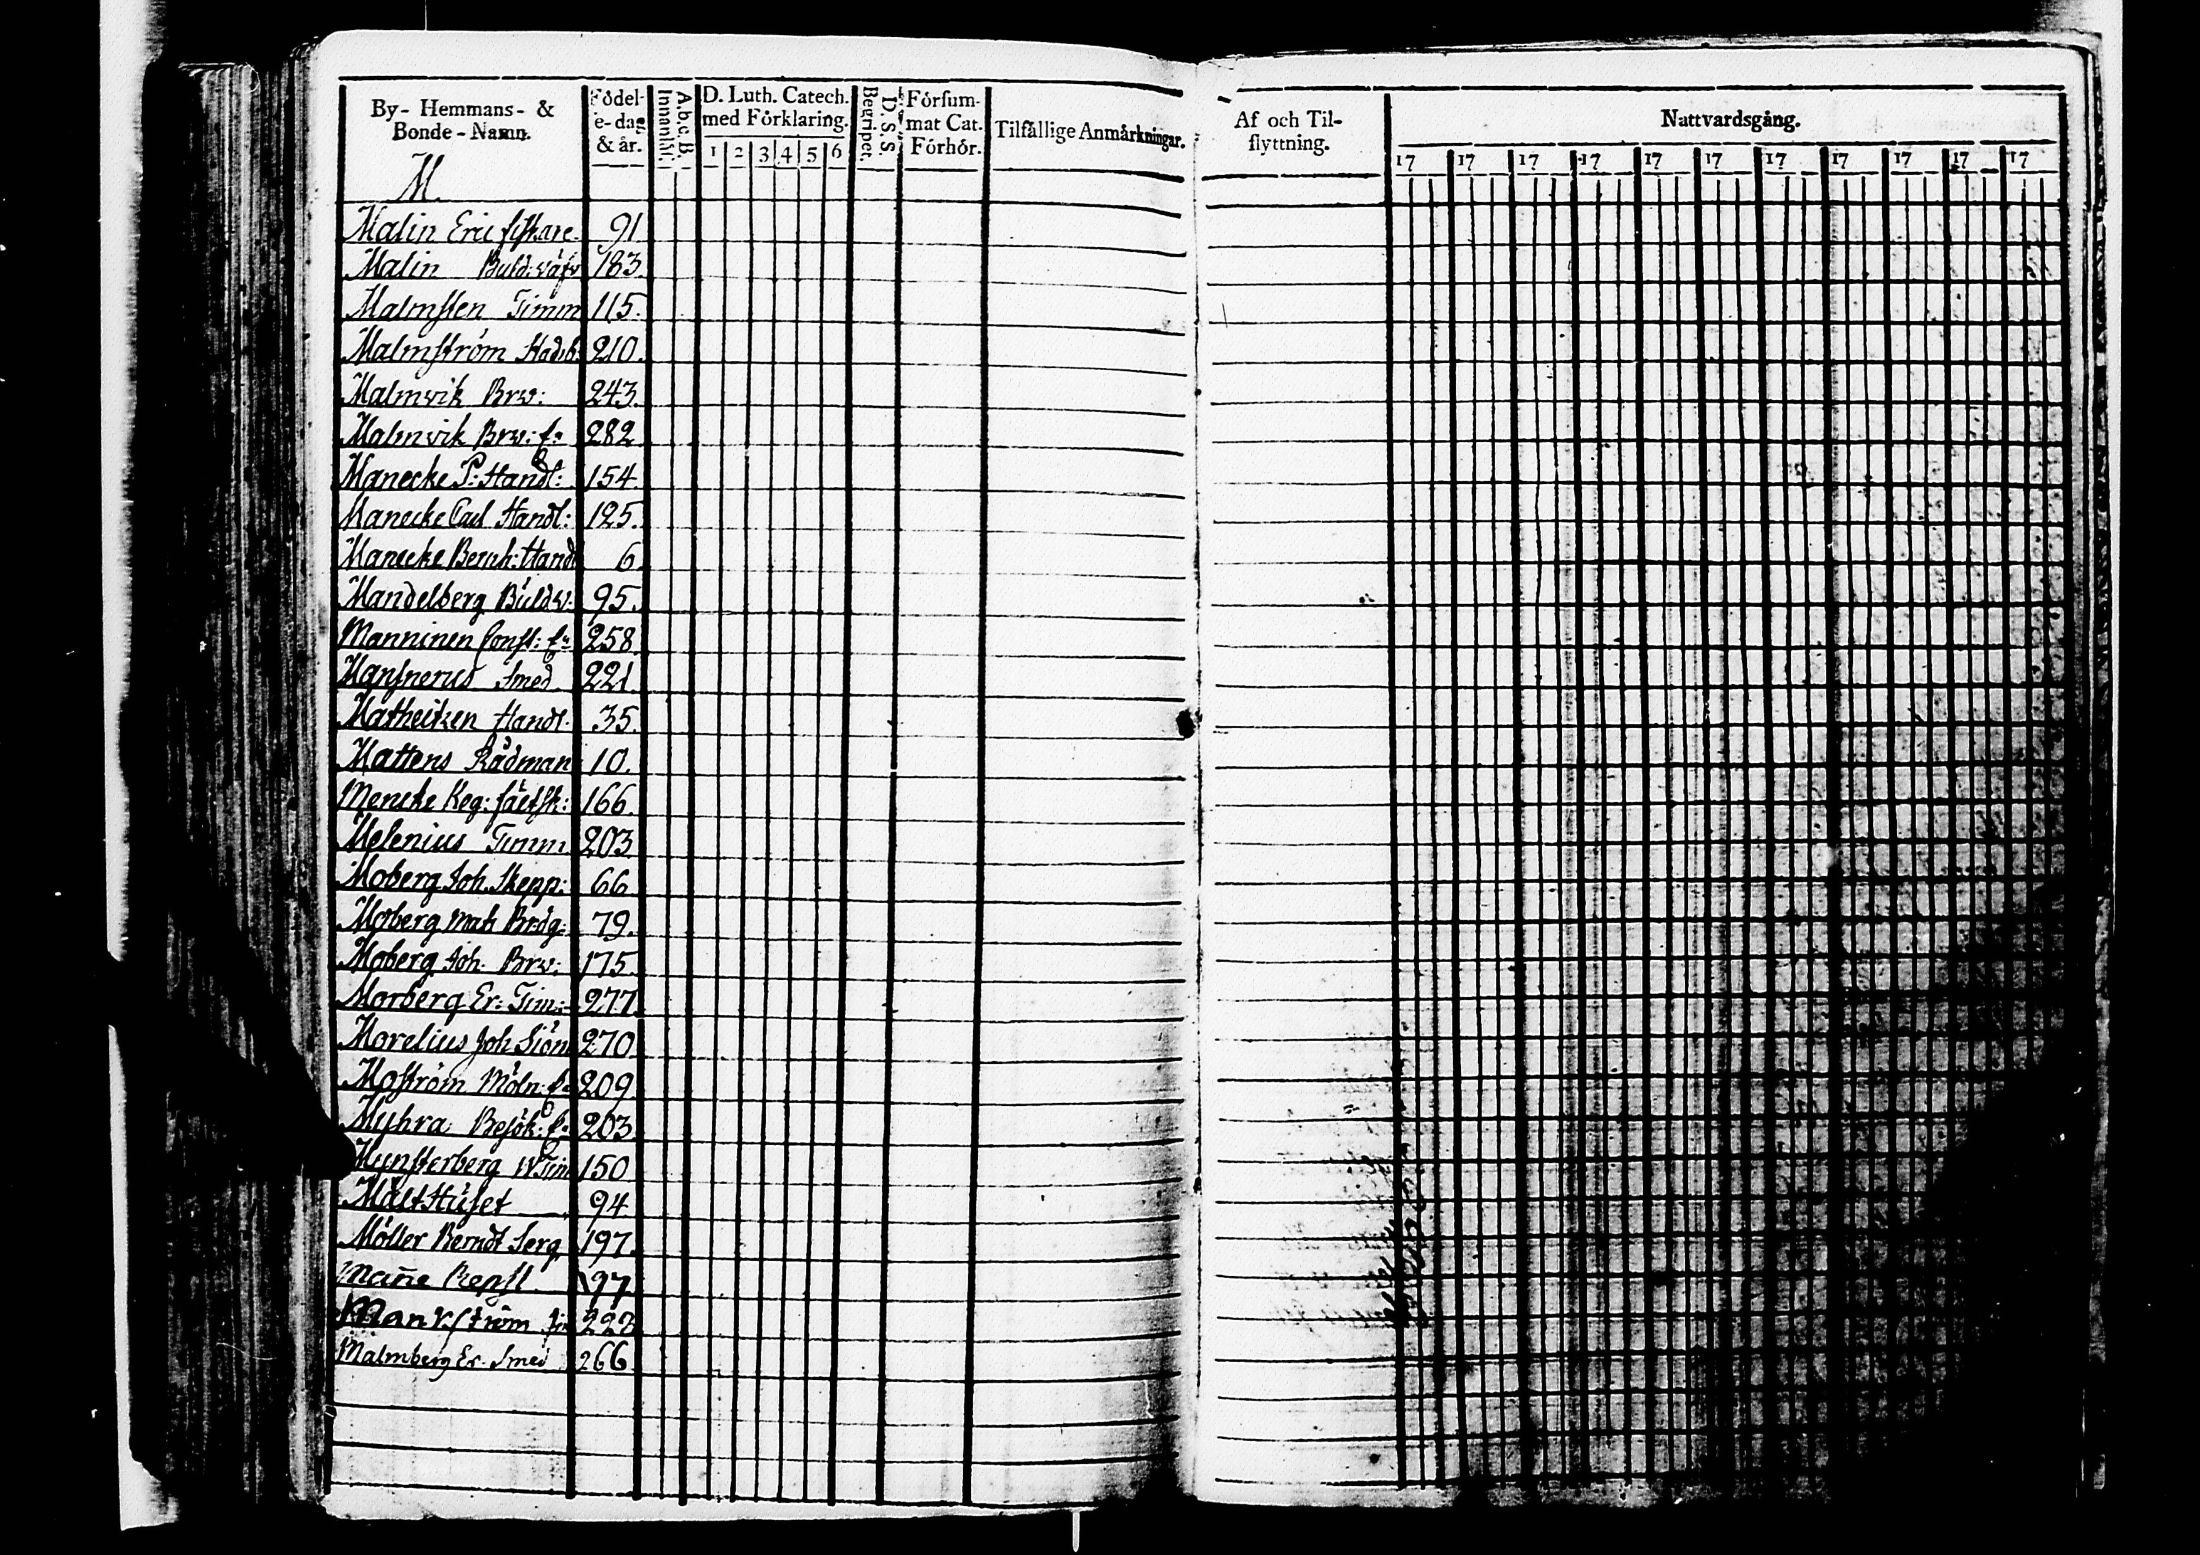 By- Hemmans- & Bonde-Namn.
Födel-e-dag & år.
A.b.c.B. Innanläsn.
D. Luth. Catech. med Förklaring.
1 2 3 4 5 6
D. S. S. Begripet.
Försummat Cat. Förhör.
Tilfällige Anmärkningar.
Af och Tilflyttning.
Nattvardsgång.
17 17 17 17 17 17 17 17 17 17 17
M.
Malin Eric fiskare 91
Malin Buld: väfv 183.
Malmsten Timm 115.
Malmström Stads 210.
Malmvik Brw: 243.
Malmvik Brw: E: 282
Manecke P: Handl: 154
Manecke Carl Handl: 125.
Manecke Bernh: Handl 6.
Mandelberg Buldw: 95.
Manninen Const: E: 258
Mansnerus Smed 221.
Matheitzen Handl. 35.
Mattens Rådman 10.
Mencke Reg: fältsk: 166.
Melenius Timm 203
Moberg Joh. Skepp: 66.
Moberg Mats Brdg: 79.
Moberg Joh. Brw: 175.
Morberg Er: Tim: 277.
Morelius Joh Siöm 270
Moström Möln: E: 209.
Myhra Besök: E: 203.
Mynsterberg W. Tim 150
Malt Huset 94
Möller Berndt Serg 197.
Mañe 97
Mankström 227
Malmberg Er. Smed 266